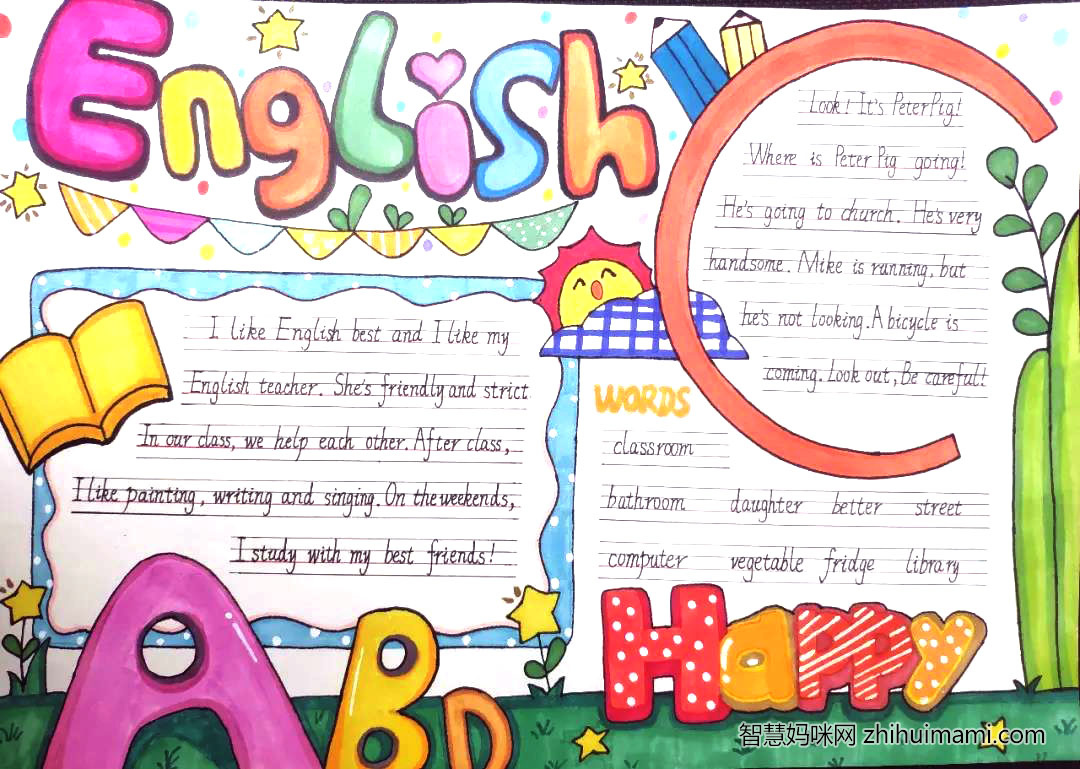 English
Look! It's Peter Pig!
Where is Peter Pig going!
He's going to church. He's very
handsome. Mike is running, but
he's not looking. A bicycle is
coming. Look out, Be careful!
I like English best and I like my
English teacher. She's friendly and strict
In our class, we help each other. After class,
I like painting, writing and singing. On the weekends,
I study with my best friends!
WORDS
classroom
bathroom daughter better street
computer vegetable fridge library
ABD
Happy
智慧妈咪网 zhihuimami.com